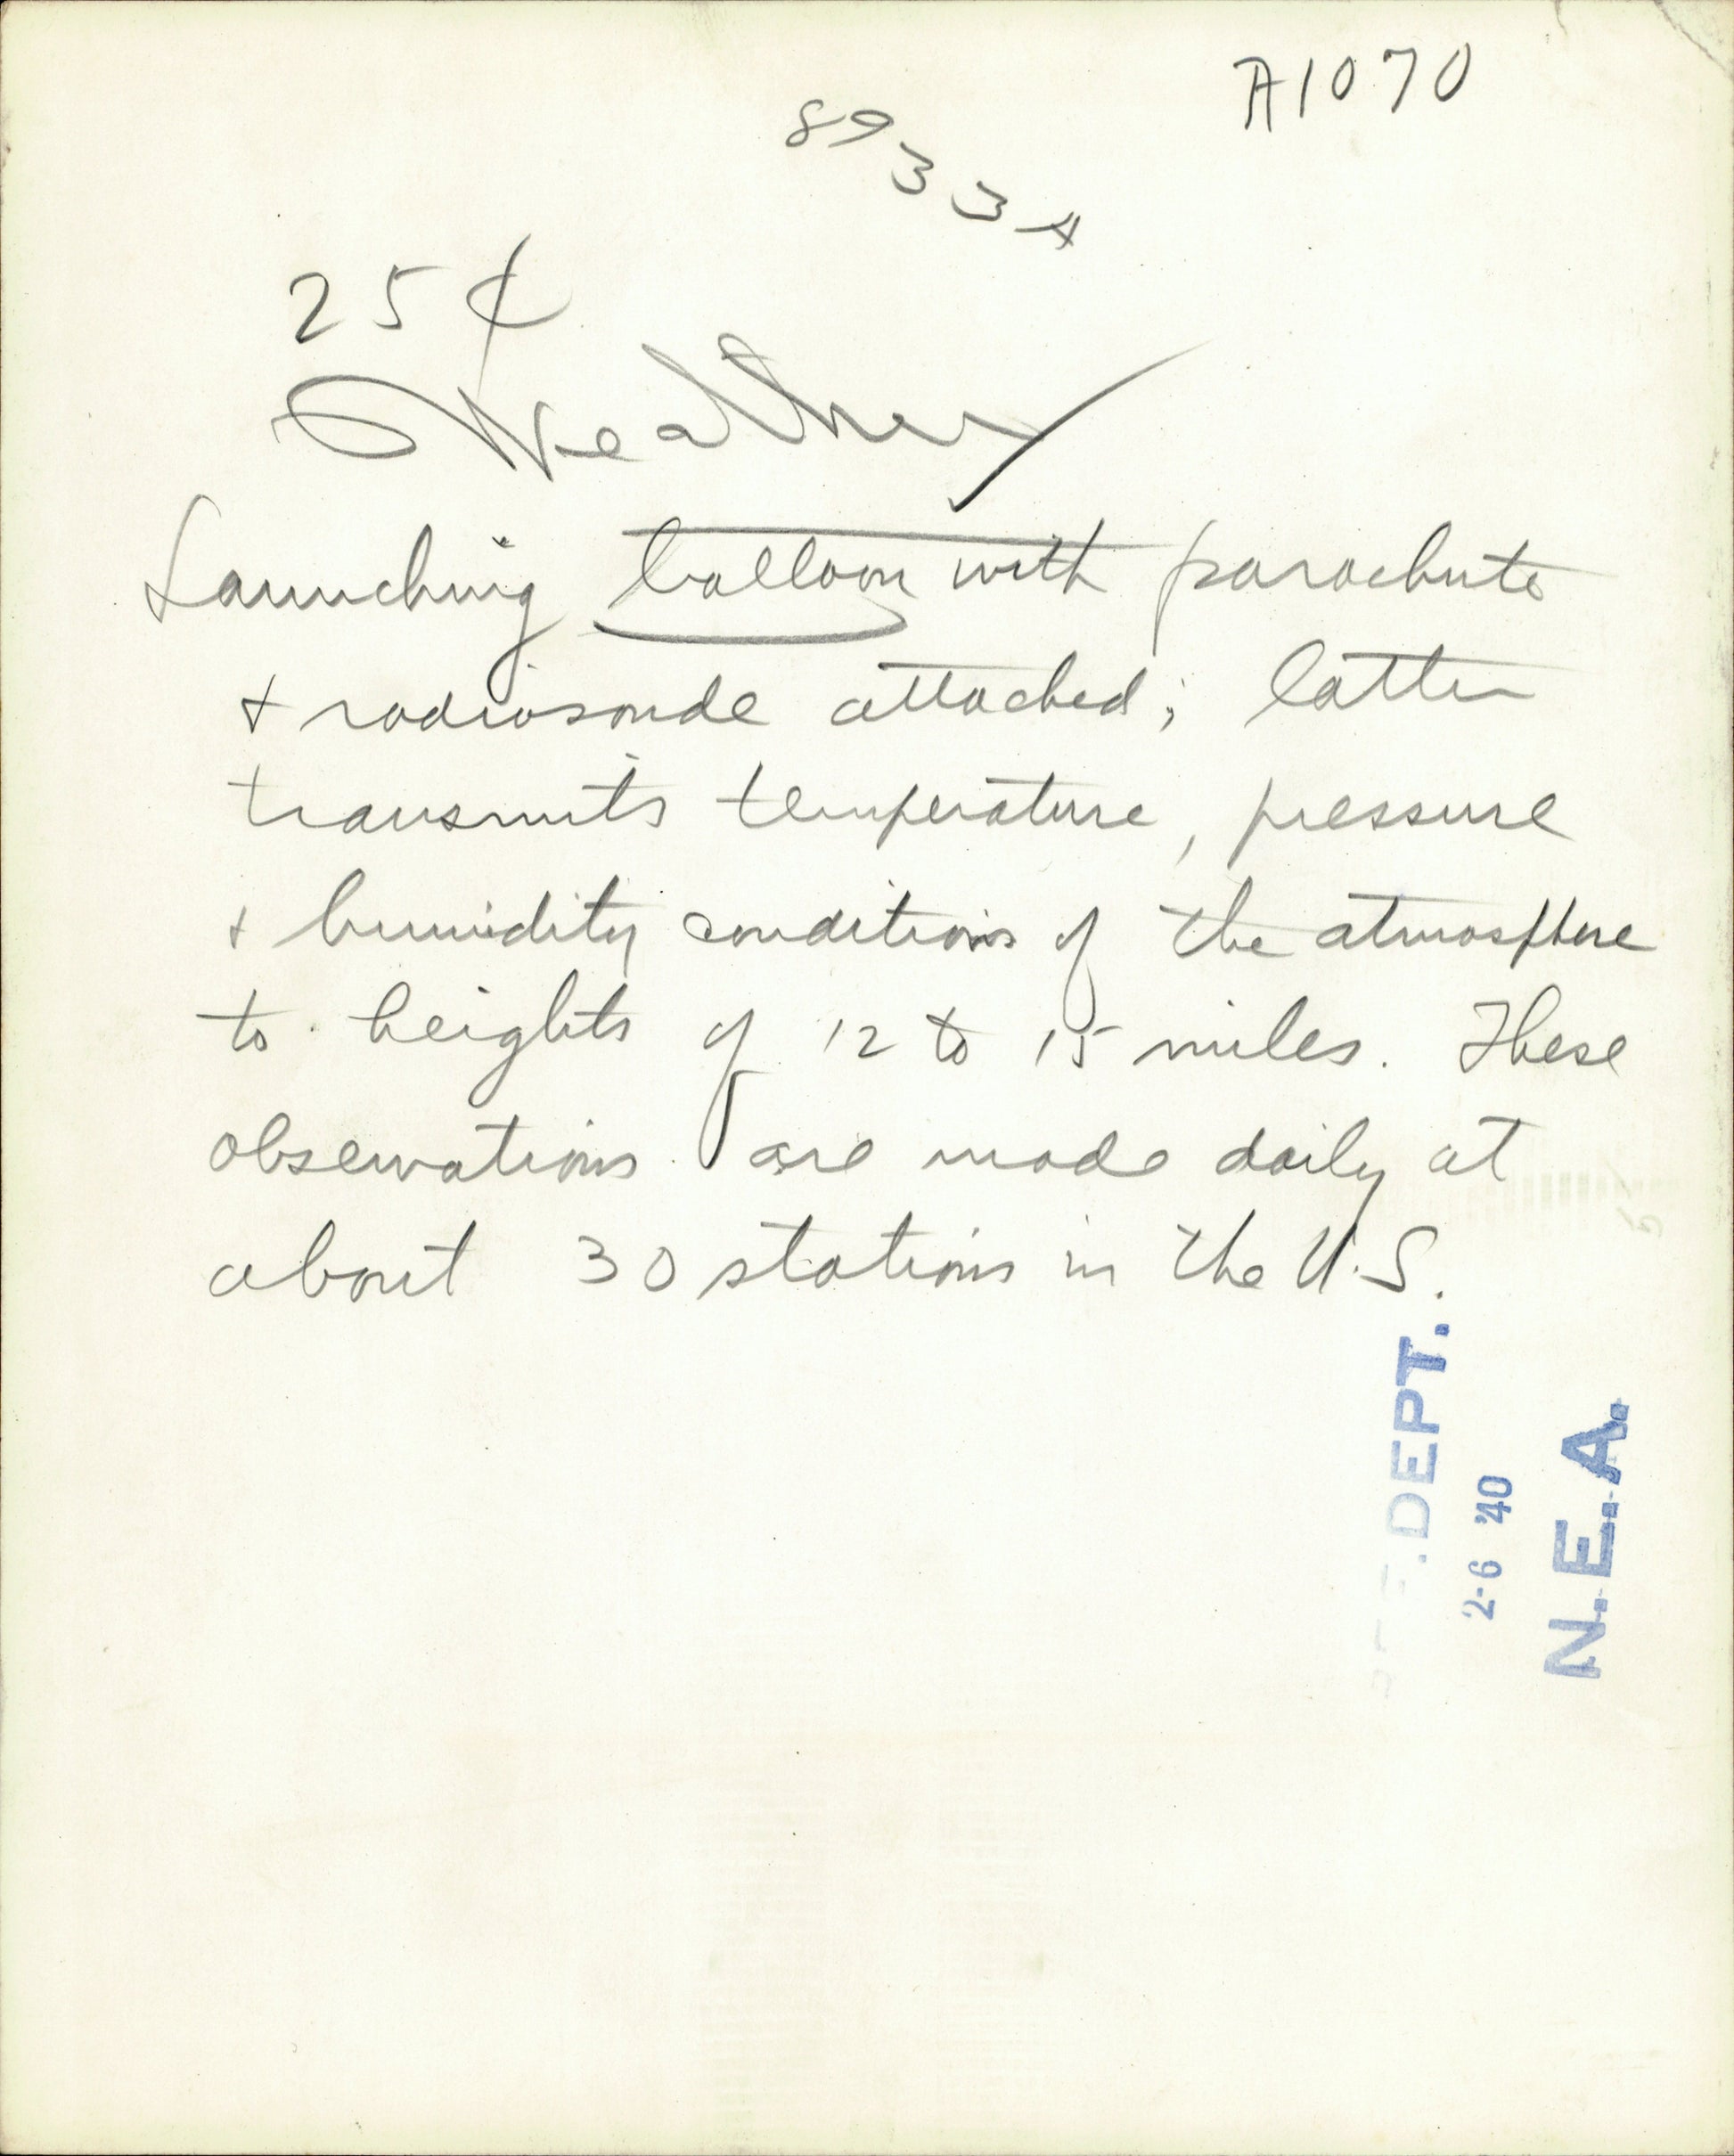 A1070
8933A
25¢
Weather
Launching balloon with parachute
+ radiosonde attached; latter
transmits temperature, pressure
+ humidity conditions of the atmosphere
to heights of 12 to 15 miles. These
observations are made daily at
about 30 stations in the U.S.
DEPT.
2-6 '40
N.E.A.